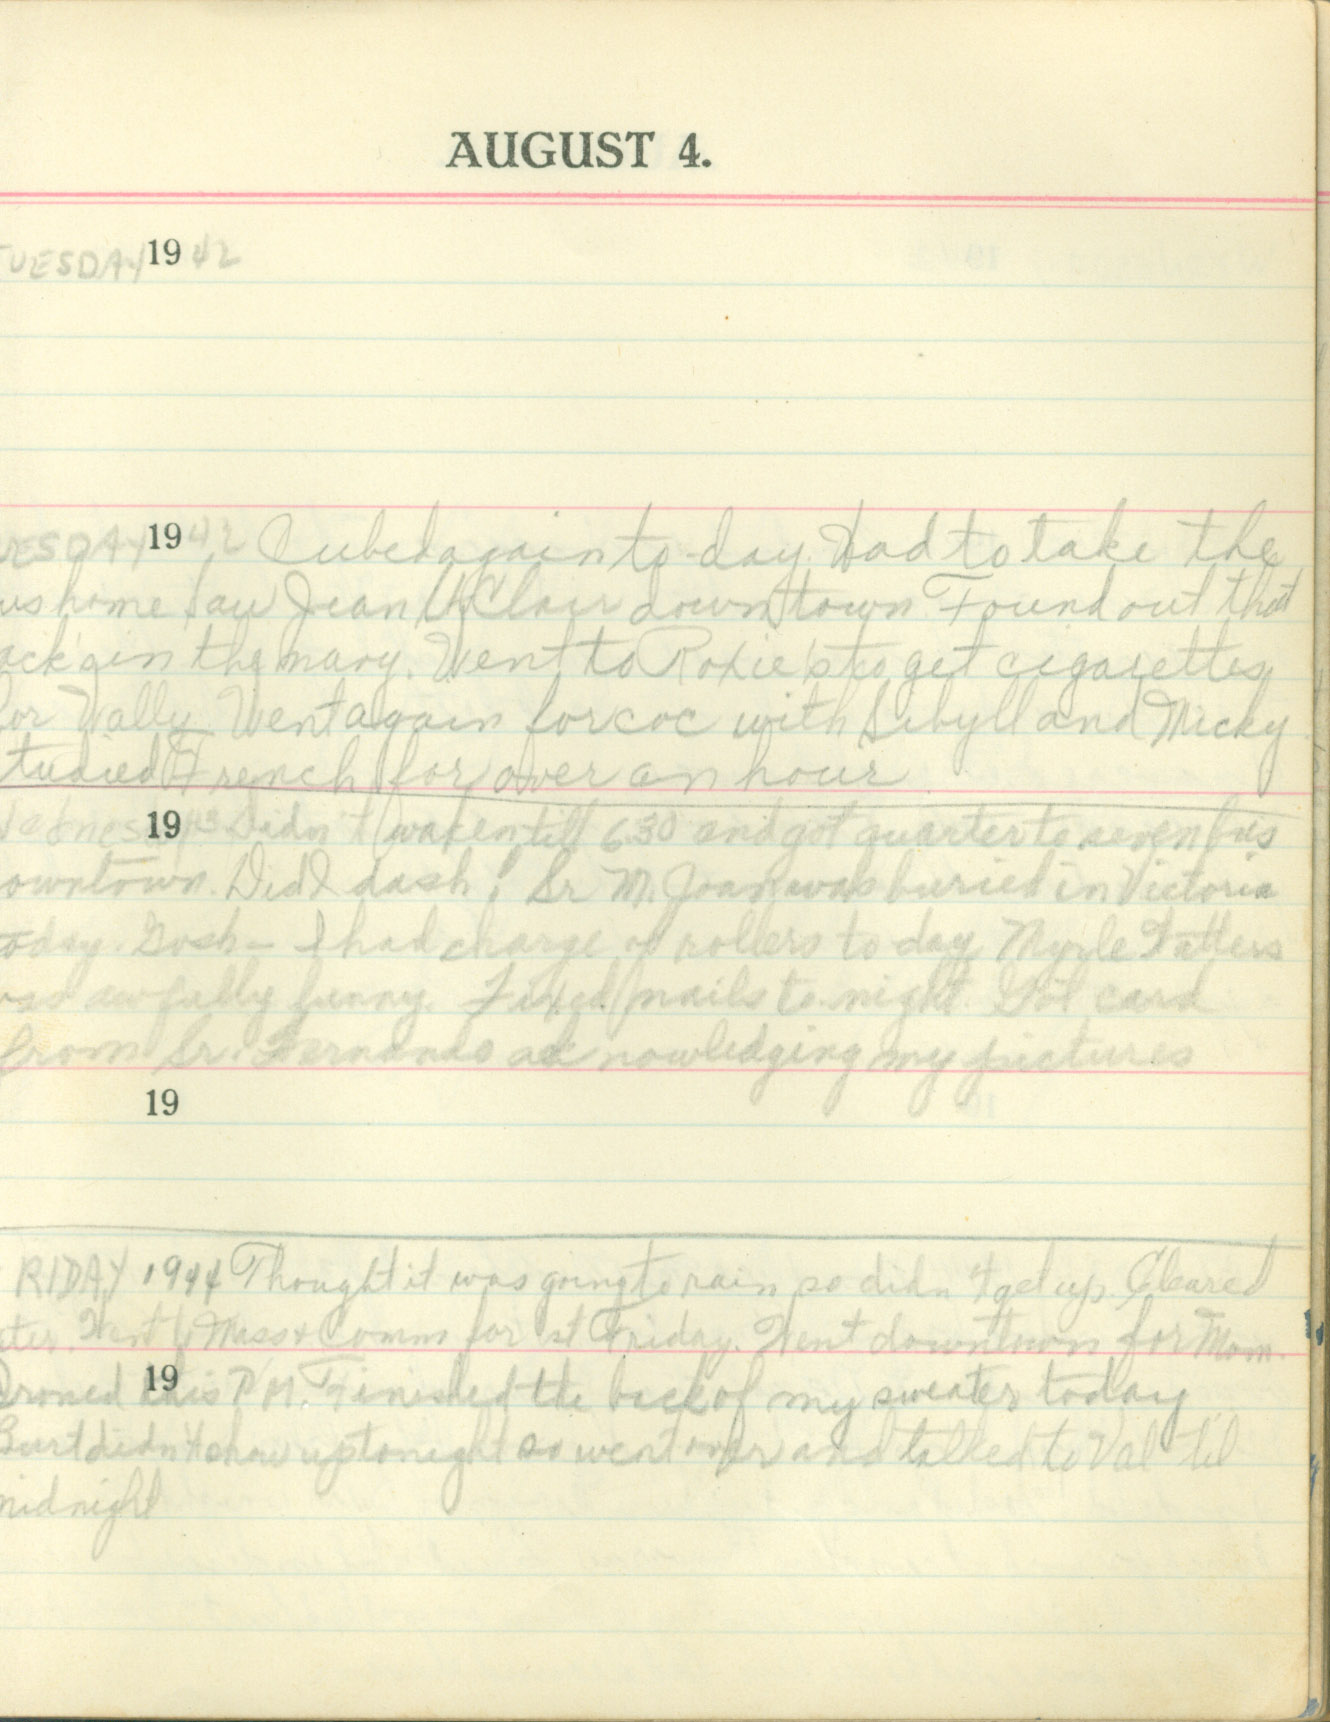 AUGUST 4.
TUESDAY 19 42
UESDAY 19 42 Cubed again to-day. Had to take the
us home Saw Jean Le Clair downtown. Found out that
ack's in the navy. Went to Roxie's to get cigarettes
for Wally. Went again for coc with Sibyll and Micky
tudied French for over an hour
Wednesday 19 43 Didn't waken till 6.30 and got quarter to seven bus
owntown. Did I dash! Sr M. Joan was buried in Victoria
today. Gosh - I had charge of rollers to day. Myrle
was awfully funny. Fixed nails to-night. Got card
from Sr. Fernando acknowledging my pictures
19
RIDAY 1944 Thought it was going to rain so didn't get up. Cleared
ter. Went to Mass & Comm for 1st Friday. Went downtown for Mom.
Ironed this P.M. Finished the back of my sweater today
19
Burt didn't show up tonight so went over and talked to Val til
midnight